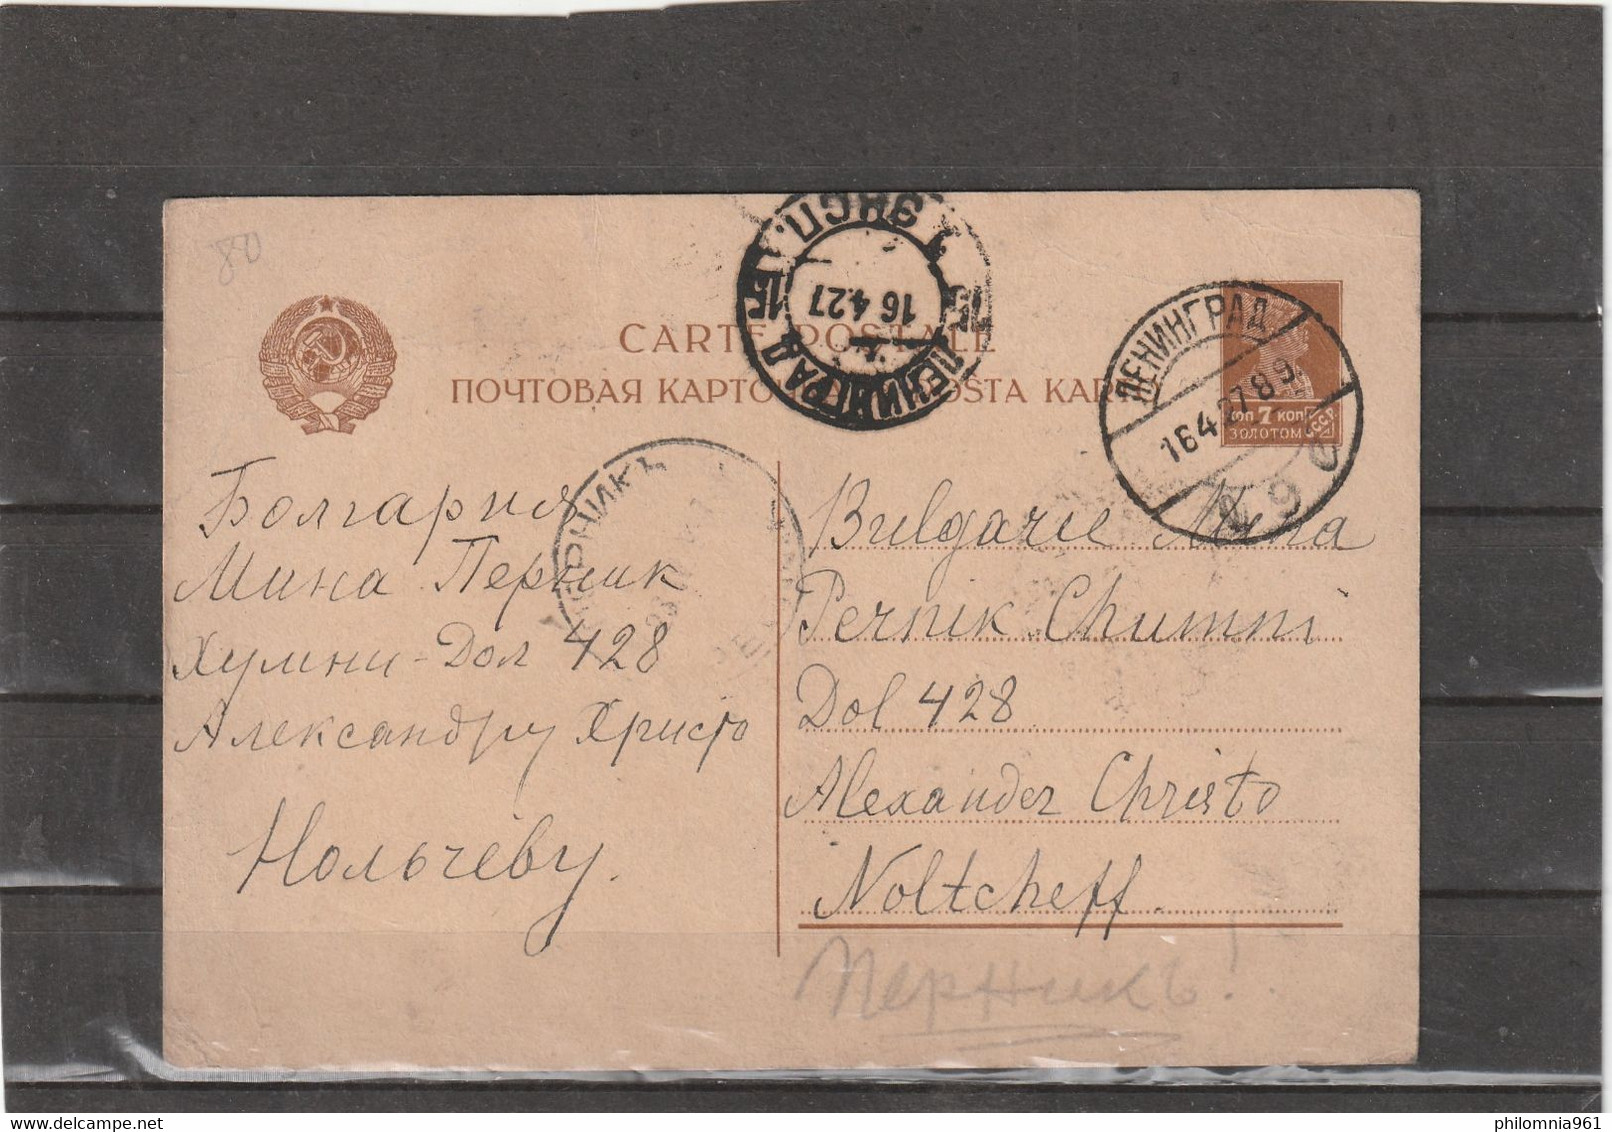 80
CARTE POSTALE
ПОЧТОВАЯ КАРТОЧКА POŜTA KARTO
ЛЕНИНГРАД 1 ЭКСП.
16 4.27
ЛЕНИНГРАД
16 4 27 8 9
коп 7 коп
ЗОЛОТОМ
СССР
ПЕРНИКЪ
Болгария
Мина Перник
Хумни-Дол 428
Александру Христо
Нольчеву.
Bulgarie Mina
Pernik Chumni
Dol 428
Alexander Christo
Noltcheff.
Перникъ!
philomnia961